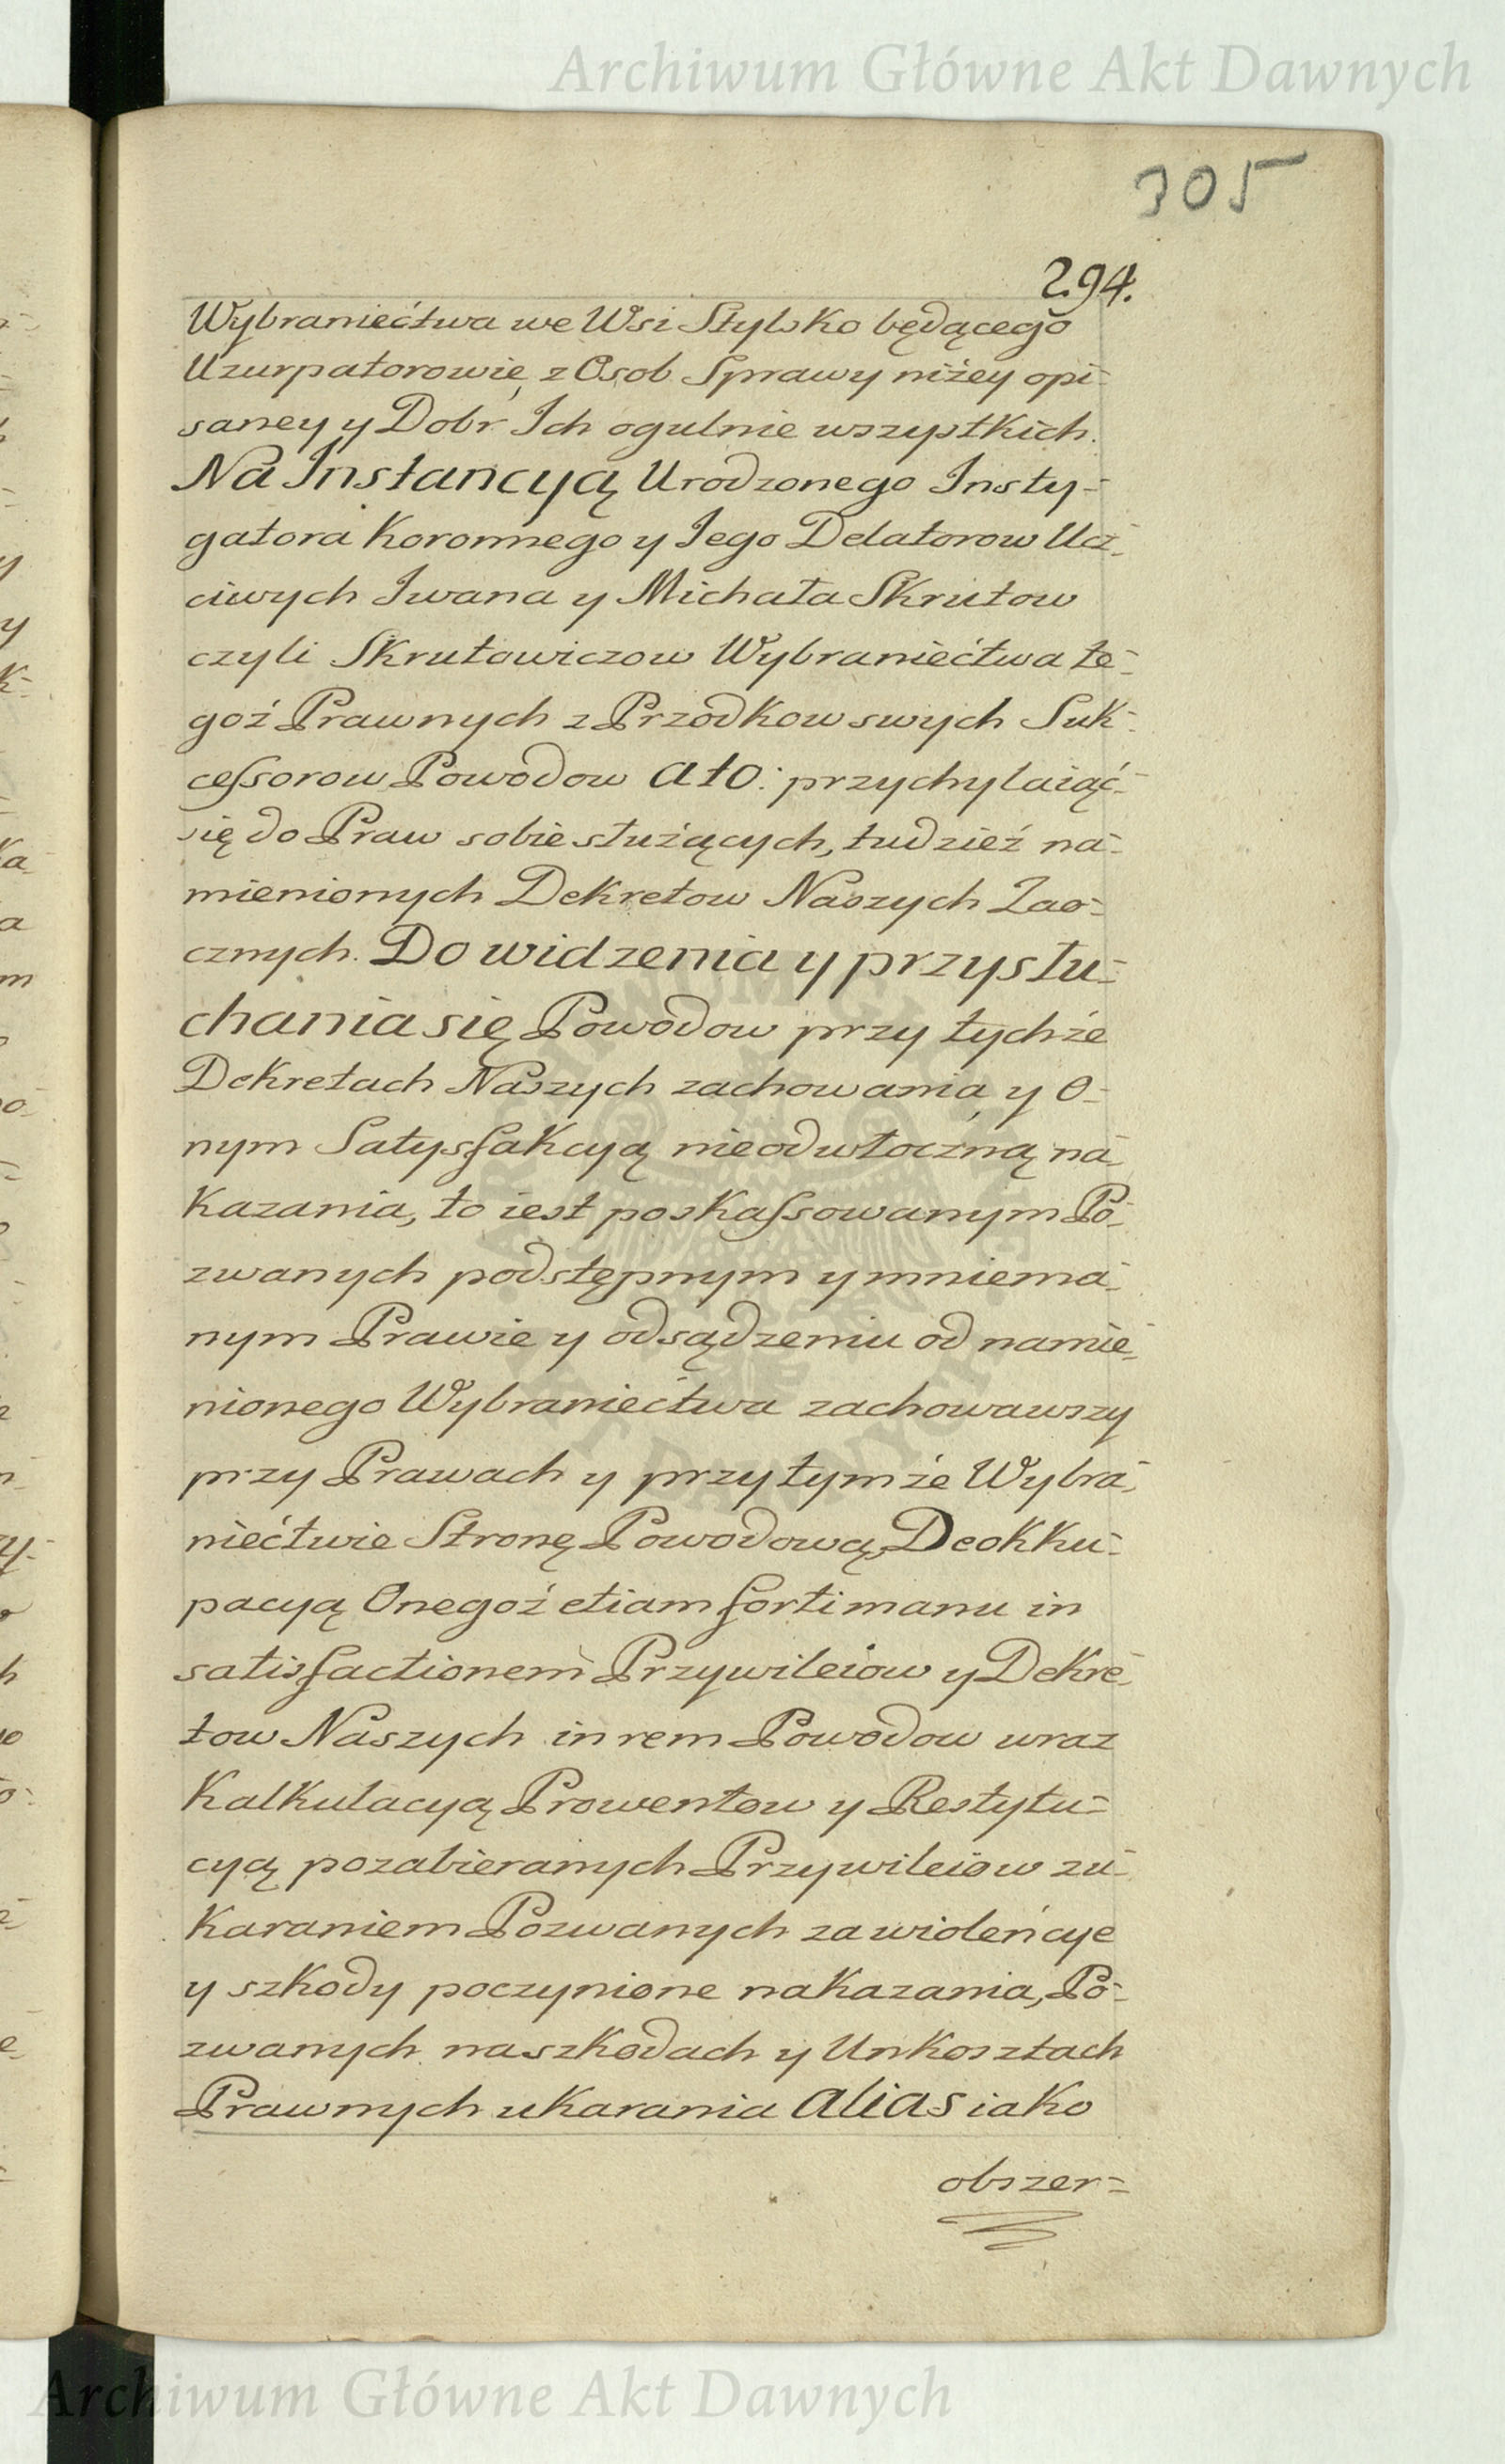 Archiwum Główne Akt Dawnych
305
294.
Wybraniećtwa we Wsi Stylsko będącego
Uzurpatorowie, z Osob Sprawy niżey opi-
saney y Dobr Ich ogulnie wszystkich.
Na Instancyą Urodzonego Insty-
gatora Koronnego y Iego Delatorow Ucz-
ciwych Iwana y Michała Skrutow
czyli Skrutowiczow Wybraniećtwa te-
goż Prawnych z Przodkow swych Suk-
cessorow Powodow Ato: przychylaiąć
się do Praw sobie służących, tudzież na-
mienionych Dekretow Naszych Zao-
cznych. Do widzenia y przysłu-
chania się Powodow przy tychże
Dekretach Naszych zachowania, y O-
nym Satysfakcyą nieodwłoczną na-
kazania, to iest poskassowanym Po-
zwanych podstępnym y mniema-
nym Prawie y odsądzeniu od namie-
nionego Wybraniećtwa zachowawszy
przy Prawach y przy tymże Wybra-
niećtwie Stronę Powodową, Deokku-
pacyą Onegoż etiam forti manu in
satisfactionem Przywileiow y Dekre-
tow Naszych in rem Powodow wraz
Kalkulacyą Prowentow y Restytu-
cyą pozabieranych Przywileiow zu-
karaniem Pozwanych za wioleńcye
y szkody poczynione nakazania, Po-
zwanych na szkodach y Unkosztach
Prawnych ukarania alias iako
obszer-
Archiwum Główne Akt Dawnych